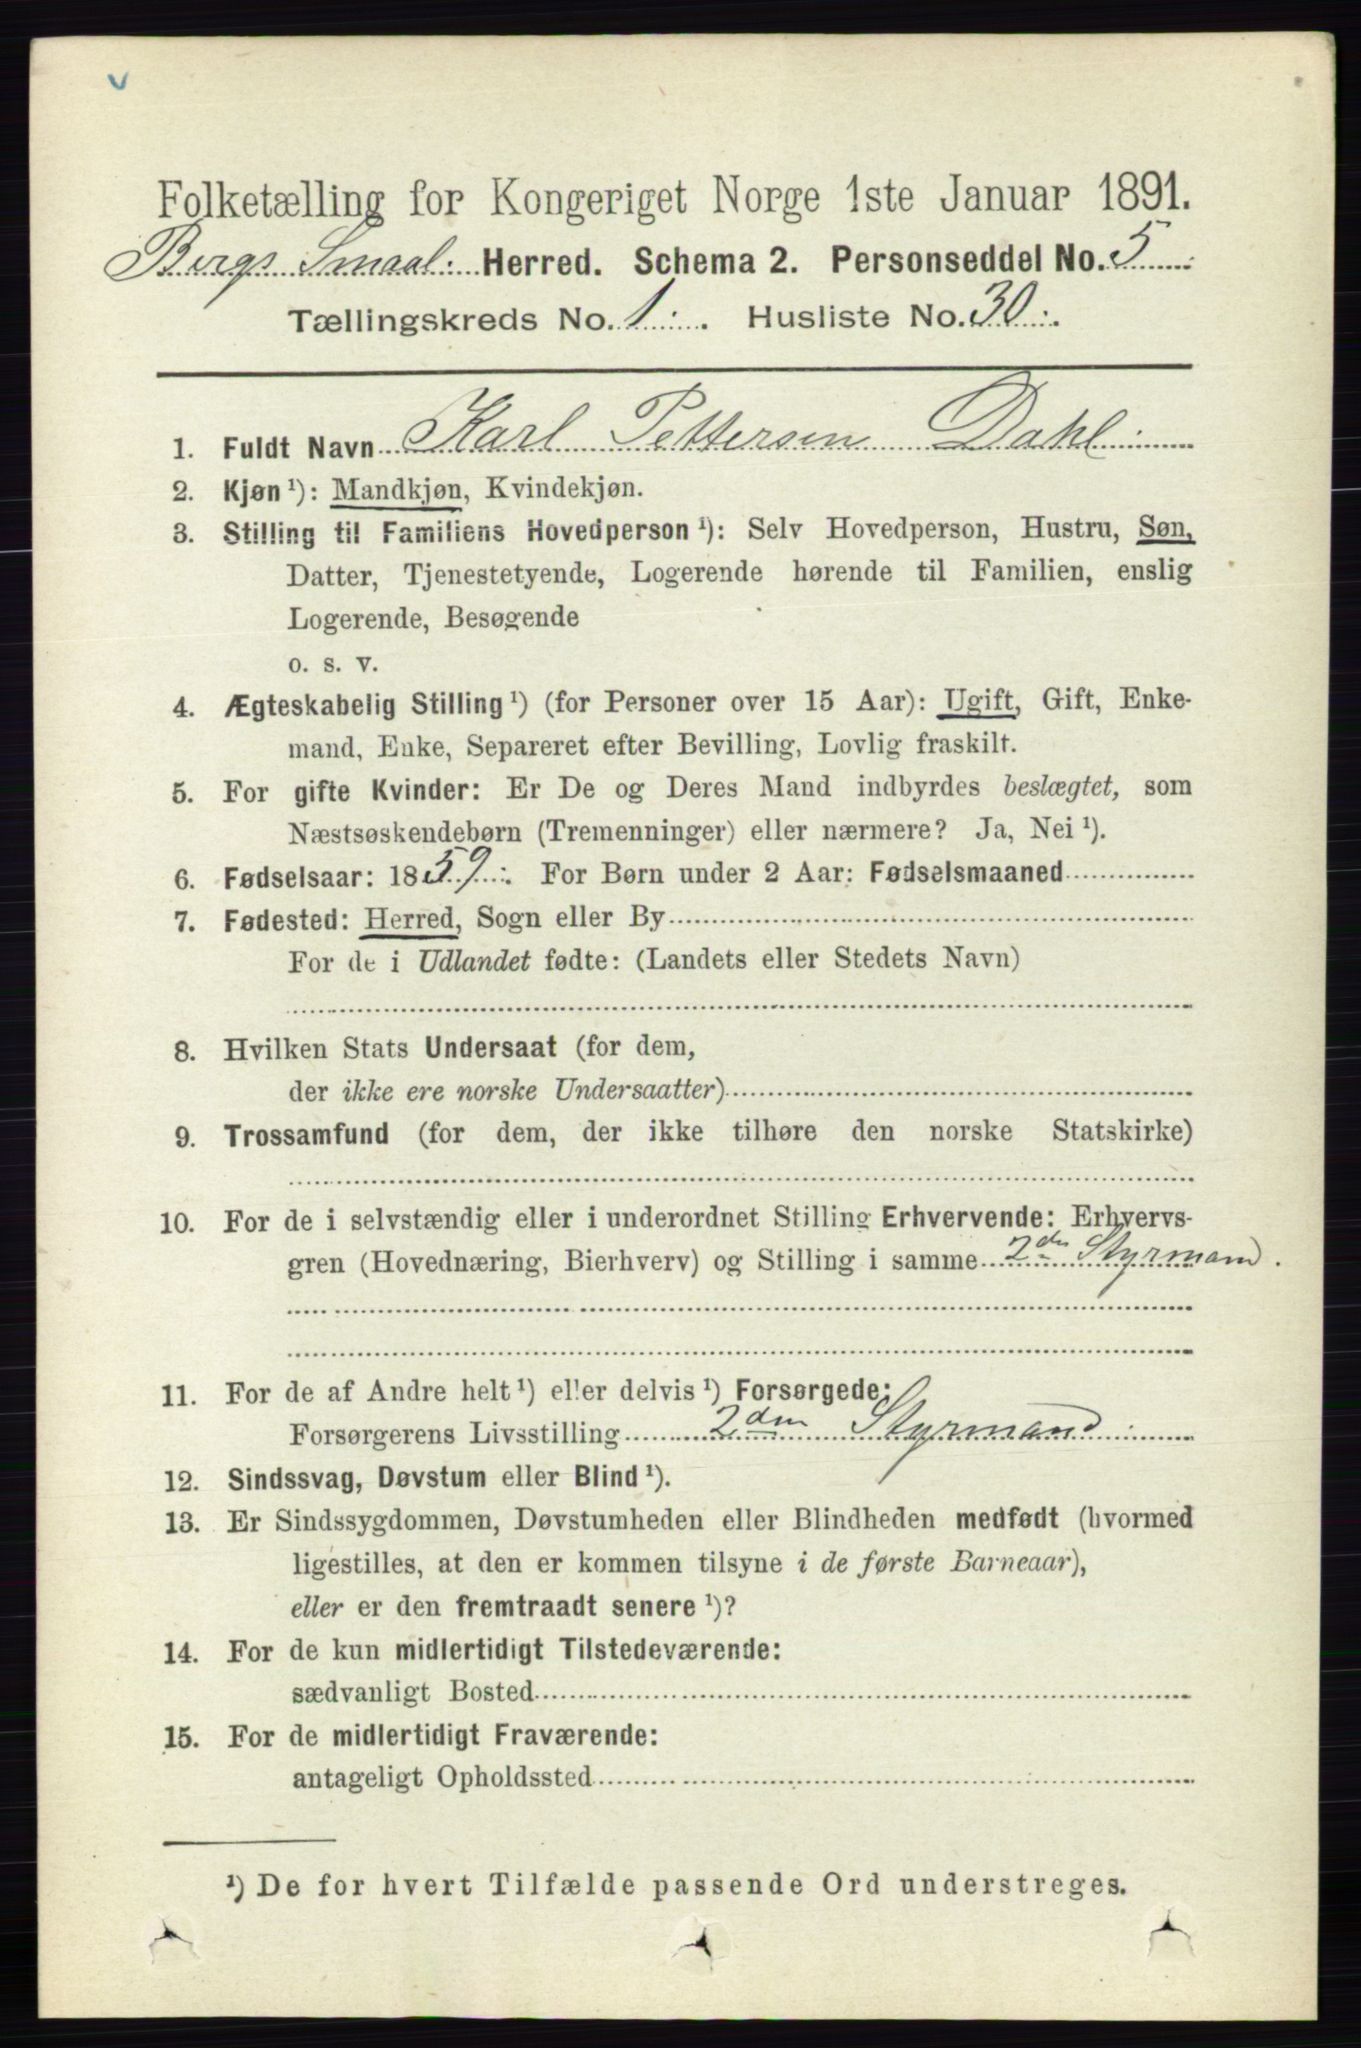 Folketælling for Kongeriget Norge 1ste Januar 1891.
Bergs Smaal. Herred. Schema 2. Personseddel No. 5
Tællingskreds No. 1. Husliste No. 30.
1. Fuldt Navn Karl Pettersen Dahl.
2. Kjøn ¹): Mandkjøn, Kvindekjøn.
3. Stilling til Familiens Hovedperson ¹): Selv Hovedperson, Hustru, Søn,
Datter, Tjenestetyende, Logerende hørende til Familien, enslig
Logerende, Besøgende
o. s. v.
4. Ægteskabelig Stilling ¹) (for Personer over 15 Aar): Ugift, Gift, Enke-
mand, Enke, Separeret efter Bevilling, Lovlig fraskilt.
5. For gifte Kvinder: Er De og Deres Mand indbyrdes beslægtet, som
Næstsøskendebørn (Tremenninger) eller nærmere? Ja, Nei ¹).
6. Fødselsaar: 1859. For Børn under 2 Aar: Fødselsmaaned
7. Fødested: Herred, Sogn eller By
For de i Udlandet fødte: (Landets eller Stedets Navn)
8. Hvilken Stats Undersaat (for dem,
der ikke ere norske Undersaatter)
9. Trossamfund (for dem, der ikke tilhøre den norske Statskirke)
10. For de i selvstændig eller i underordnet Stilling Erhvervende: Erhvervs-
gren (Hovednæring, Bierhverv) og Stilling i samme 2den Styrmand.
11. For de af Andre helt ¹) eller delvis ¹) Forsørgede:
Forsørgerens Livsstilling 2den Styrmand.
12. Sindssvag, Døvstum eller Blind ¹).
13. Er Sindssygdommen, Døvstumheden eller Blindheden medfødt (hvormed
ligestilles, at den er kommen tilsyne i de første Barneaar),
eller er den fremtraadt senere ¹)?
14. For de kun midlertidigt Tilstedeværende:
sædvanligt Bosted
15. For de midlertidigt Fraværende:
antageligt Opholdssted
¹) De for hvert Tilfælde passende Ord understreges.